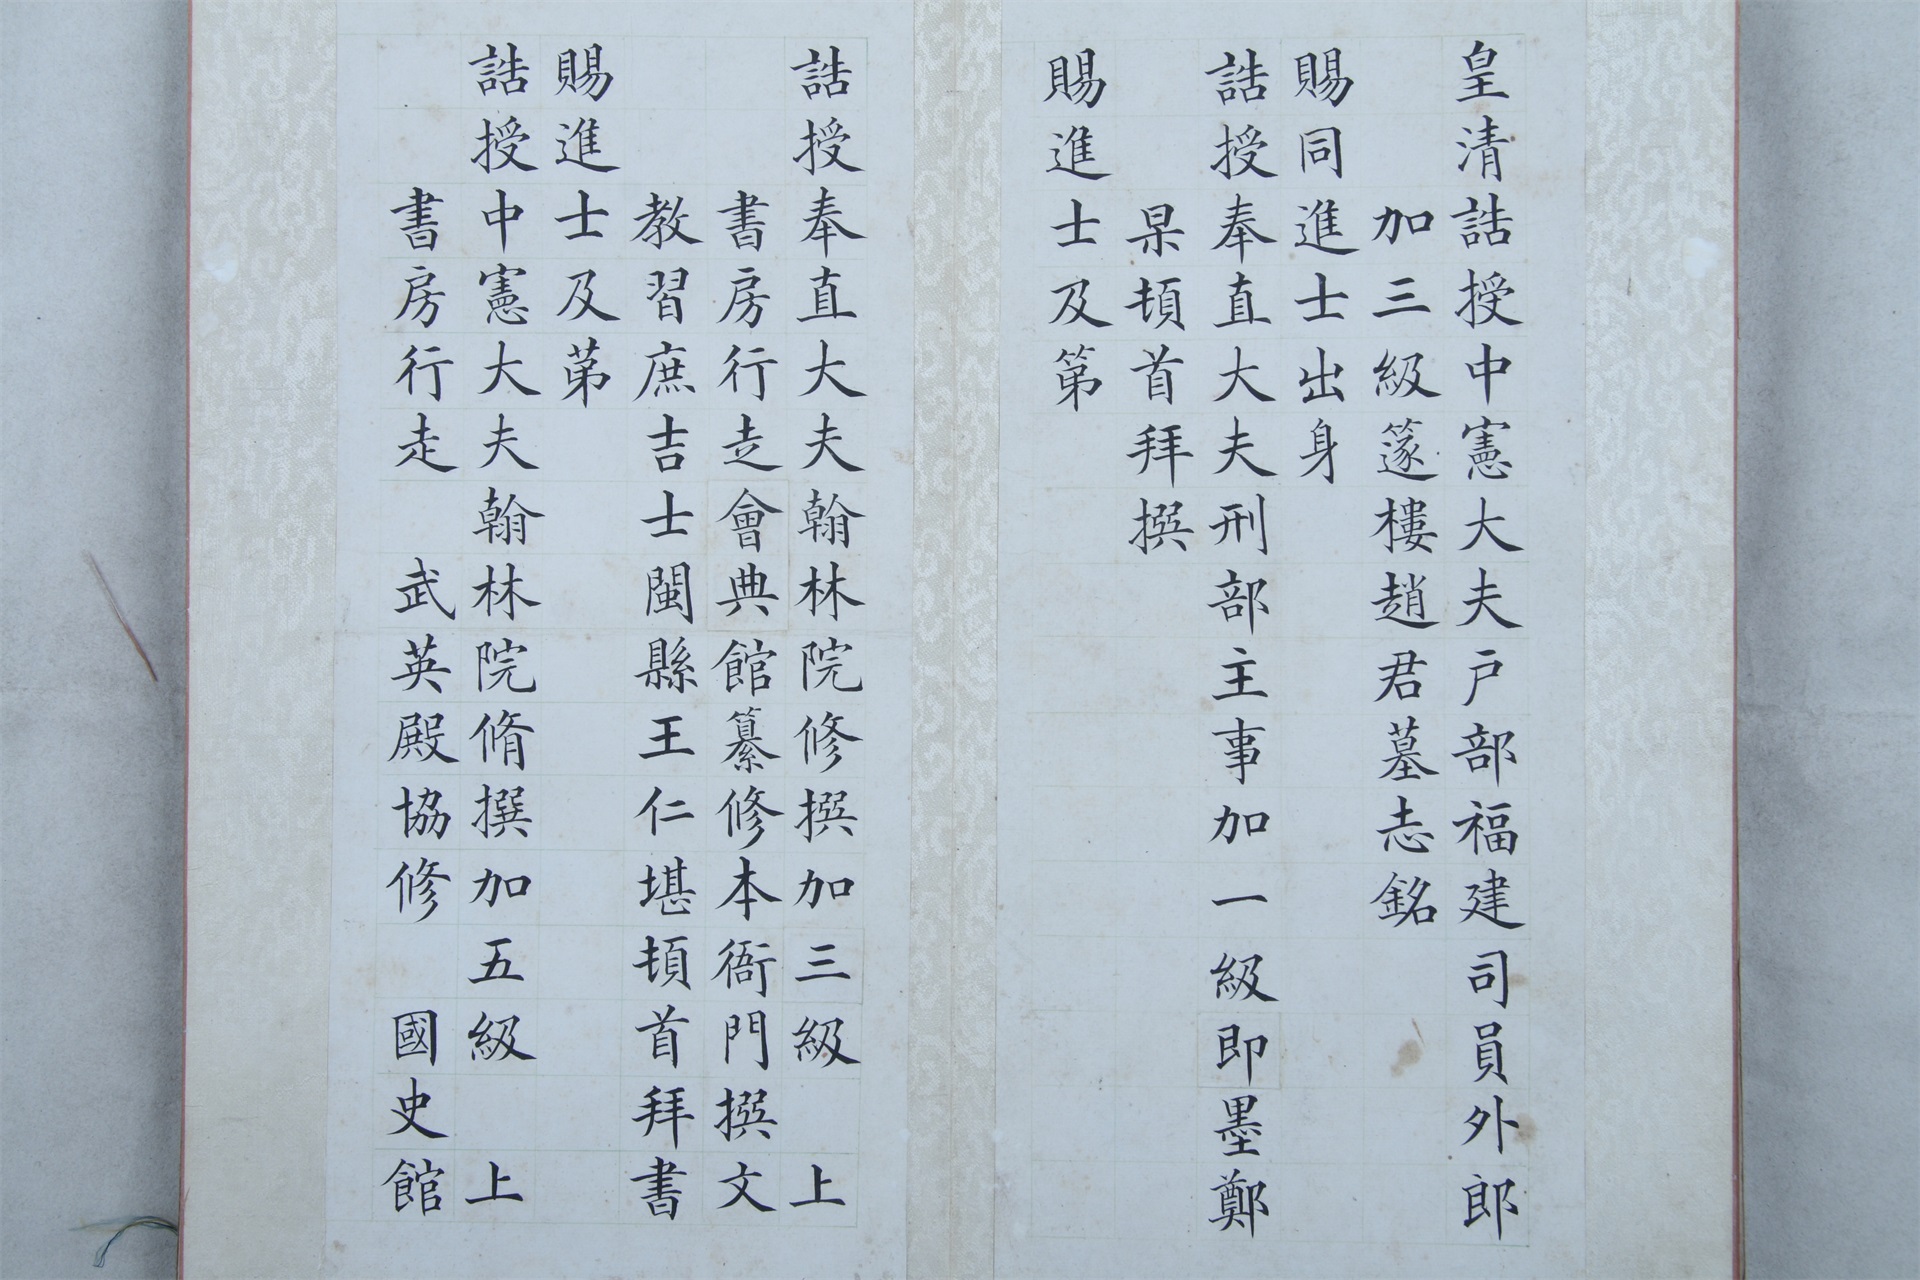 皇清誥授中憲大夫戶部福建司員外郎
加三級篴樓趙君墓志銘
賜同進士出身
誥授奉直大夫刑部主事加一級即墨鄭
杲頓首拜撰
賜進士及第
誥授奉直大夫翰林院修撰加三級 上
書房行走會典館纂修本衙門撰文
教習庶吉士閩縣王仁堪頓首拜書
賜進士及第
誥授中憲大夫翰林院脩撰加五級 上
書房行走 武英殿協修 國史館